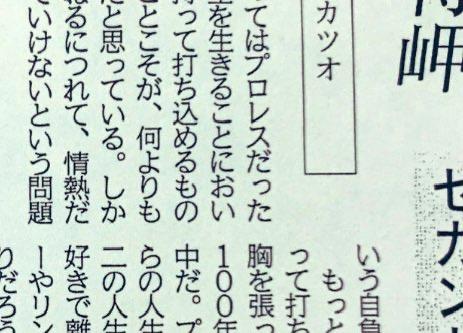 岬
セカン
カツオ
てはプロレスだった
を生きることにおい
持って打ち込めるもの
ことこそが、何よりも
だと思っている。しか
るにつれて、情熱だ
ていけないという問題
いう自
もっと
って打ち
胸を張っ
１００年
中だ。プ
らの人生
二の人生
好きで離
ーやリン
りだろう